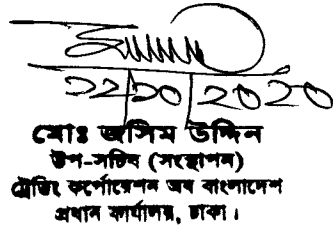 ২২/১০/২০২০
মোঃ জসিম উদ্দিন
উপ-সচিব (সংস্থাপন)
ট্রেডিং কর্পোরেশন অব বাংলাদেশ
প্রধান কার্যালয়, ঢাকা।